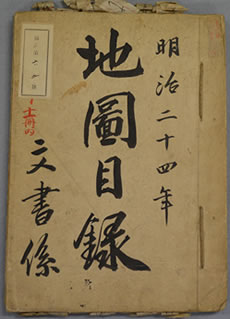 明治二十四年
地圖目録
文書係